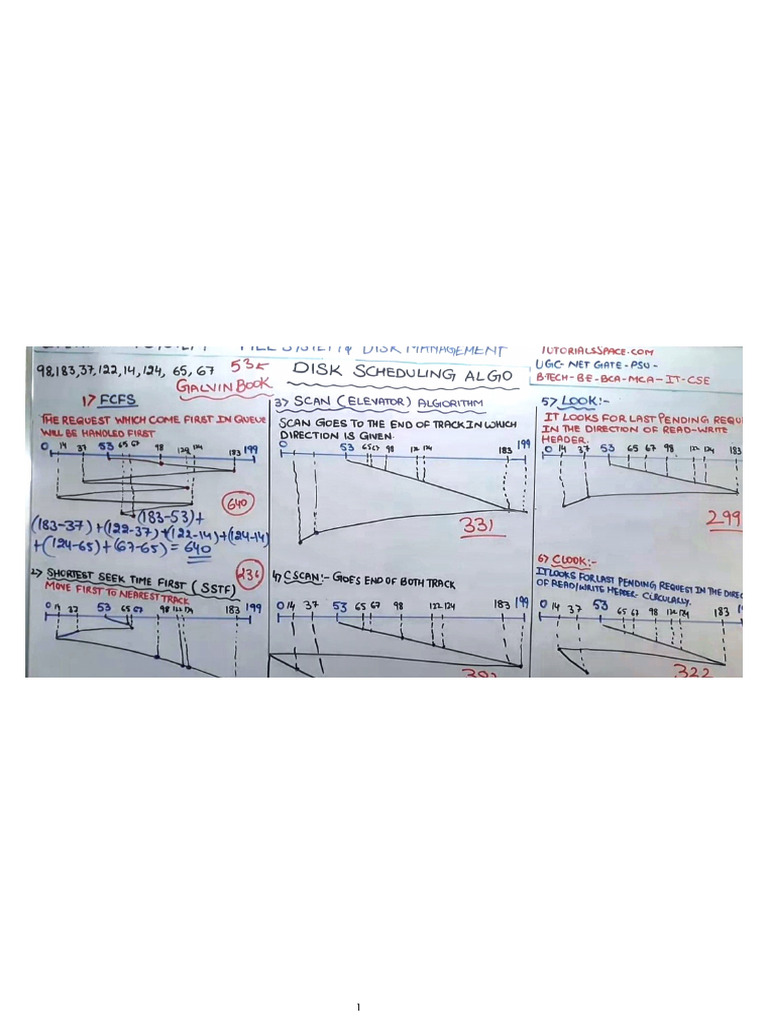 FILE SYSTEM & DISK MANAGEMENT
98,183,37,122,14,124, 65, 67 53
GALVIN BOOK
DISK SCHEDULING ALGO
TUTORIALSSPACE.COM
UGC-NET GATE-PSU-
B-TECH-BE-BCA-MCA-IT-CSE
1> FCFS
THE REQUEST WHICH COME FIRST IN QUEUE
WILL BE HANDLED FIRST
0 14 37 53 65 67 98 122 124 183 199
640
(183-53)+
(183-37)+(122-37)+(122-14)+(124-14)
+(124-65)+(67-65)=640
2> SHORTEST SEEK TIME FIRST (SSTF)
236
MOVE FIRST TO NEAREST TRACK
0 14 37 53 65 67 98 122 124 183 199
3> SCAN (ELEVATOR) ALGIORITHM
SCAN GOES TO THE END OF TRACK IN WHICH
DIRECTION IS GIVEN.
0 53 65 67 98 122 124 183 199
331
4> CSCAN:- GOES END OF BOTH TRACK
0 14 37 53 65 67 98 122 124 183 199
5> LOOK:-
IT LOOKS FOR LAST PENDING REQU
IN THE DIRECTION OF READ-WRITE
HEADER.
0 14 37 53 65 67 98 122 124 183
299
6> CLOOK:-
IT LOOKS FOR LAST PENDING REQUEST IN THE DIREC
OF READ/WRITE HEADER- CIRCULARLY.
0 14 37 53 65 67 98 122 124 183
322
1